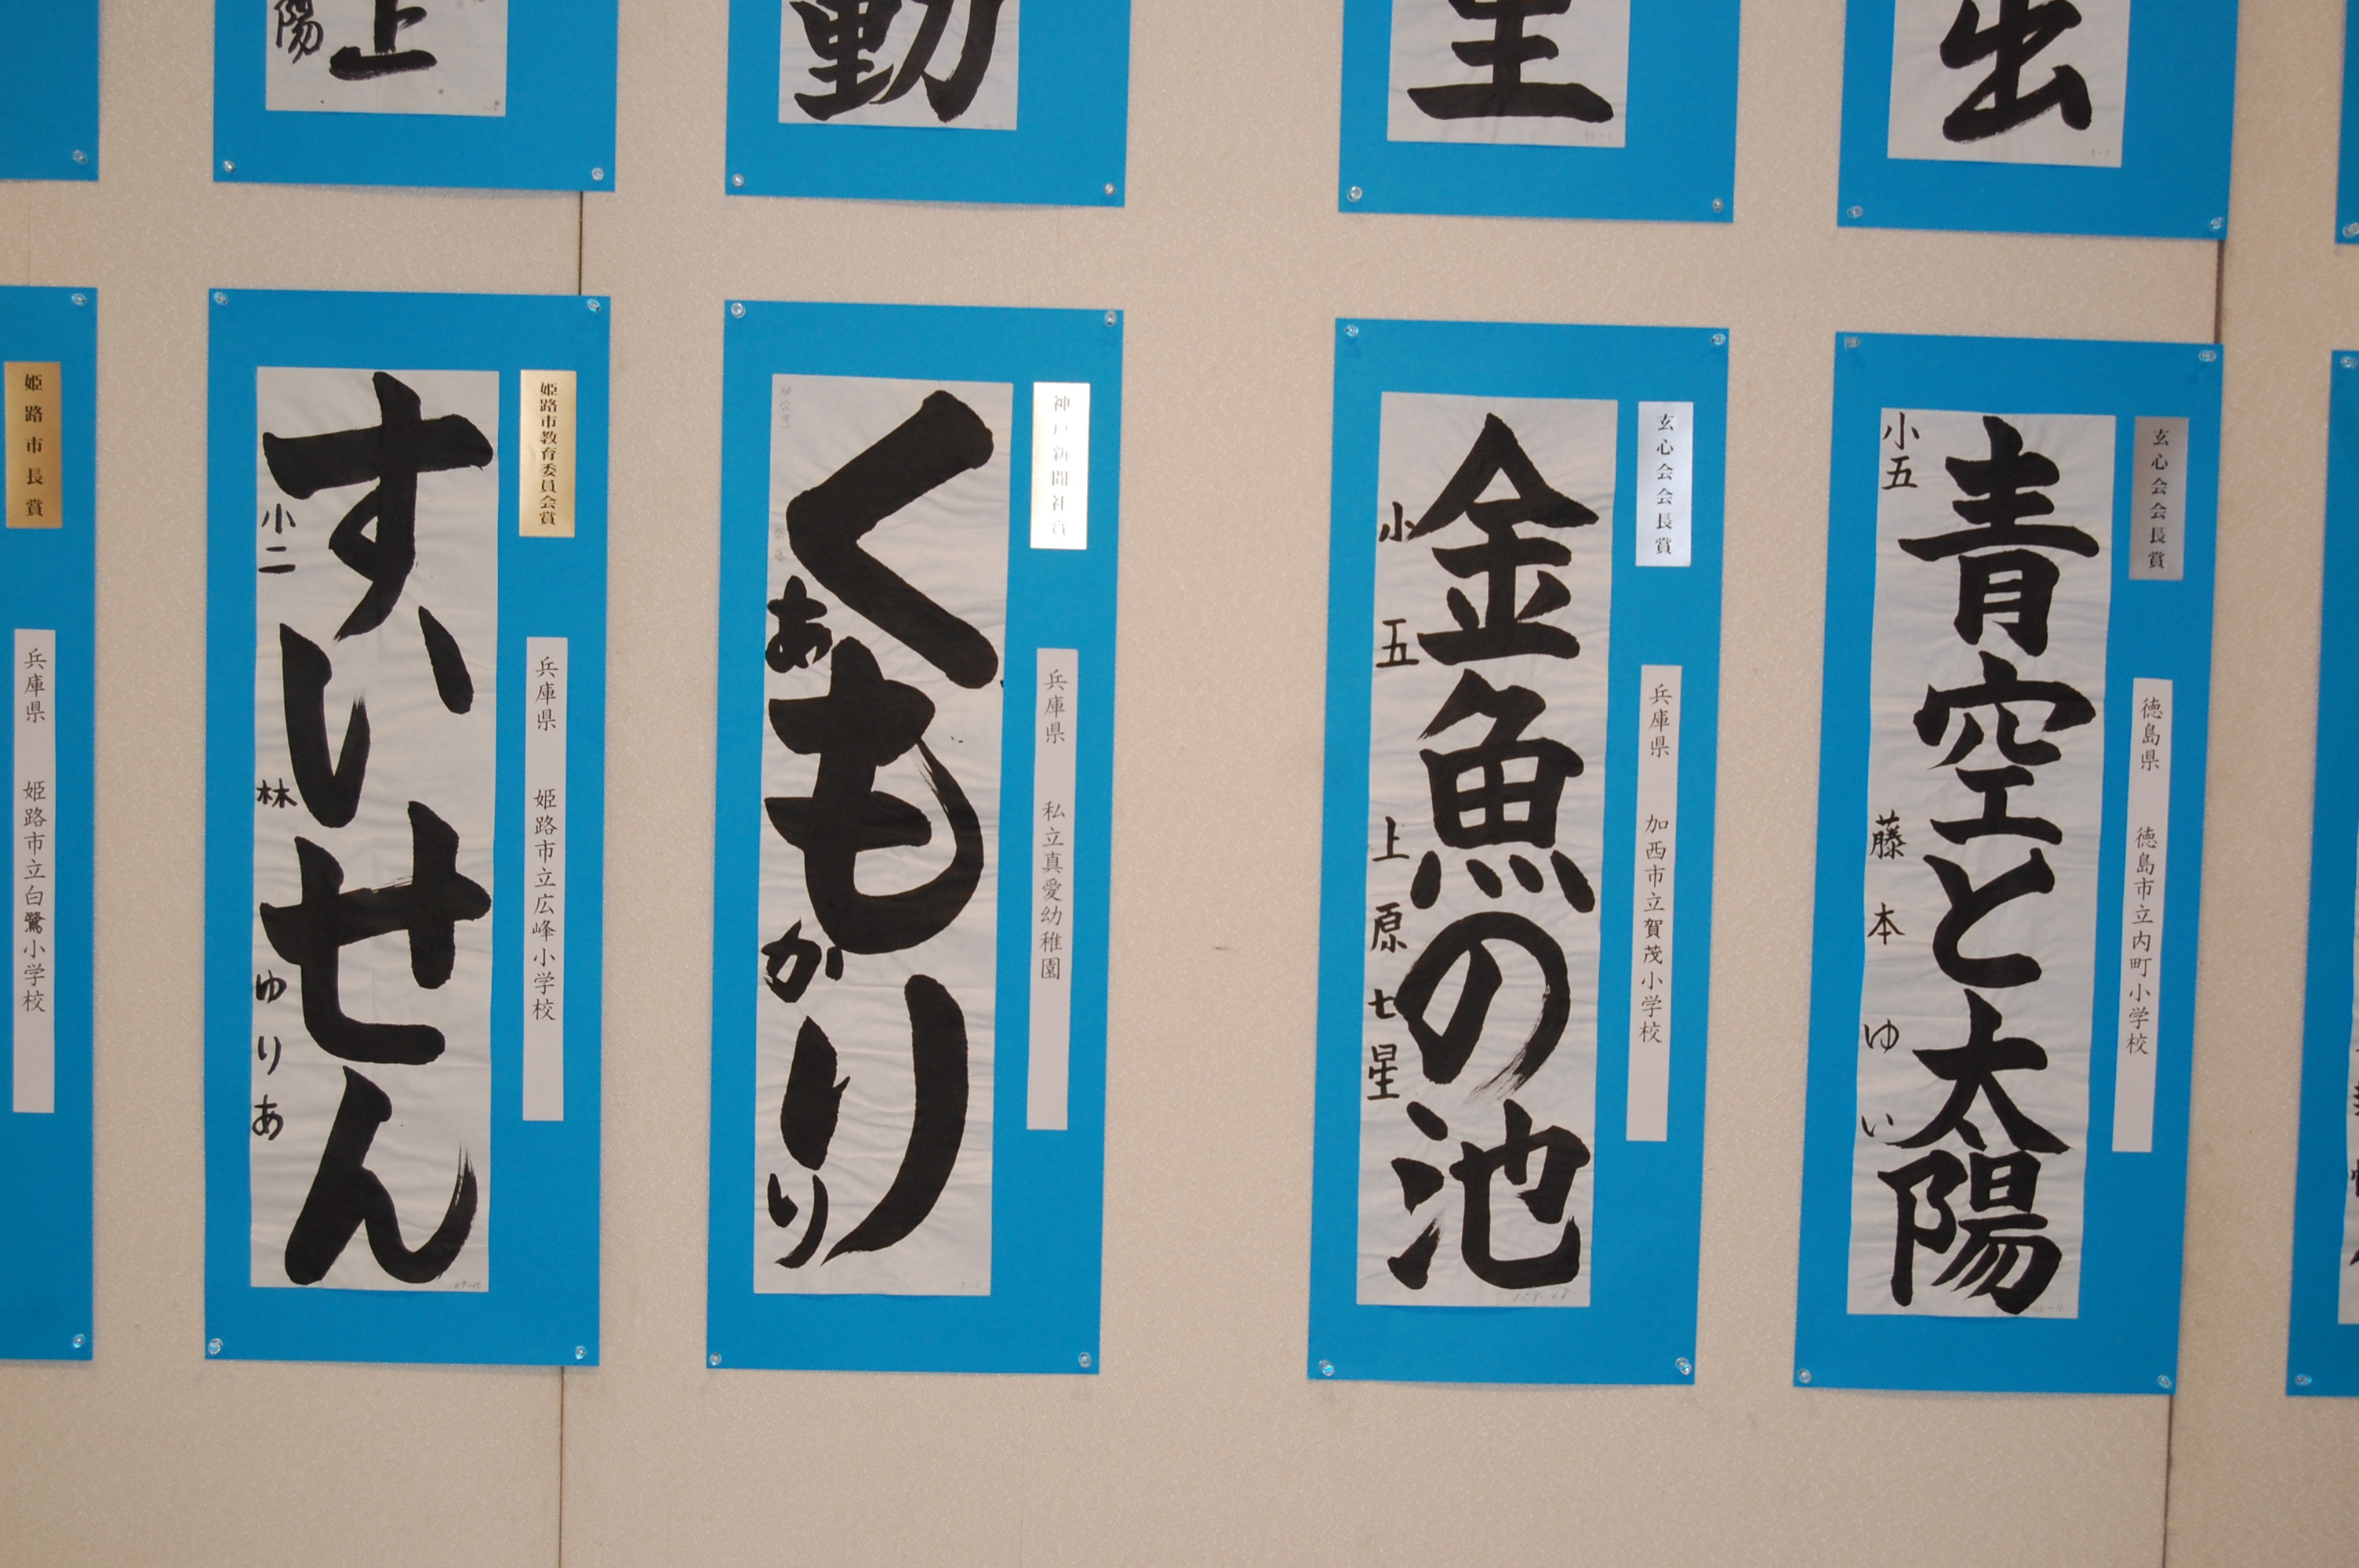 陽
上
動
里
出
姫路市長賞
兵庫県 姫路市立白鷺小学校
姫路市教育委員会賞
兵庫県 姫路市立広峰小学校
すいせん
小二 林 ゆりあ
神戸新聞社賞
兵庫県 私立真愛幼稚園
くもり
あかり
玄心会会長賞
兵庫県 加西市立賀茂小学校
金魚の池
小五 上原七星
玄心会会長賞
徳島県 徳島市立内町小学校
青空と太陽
小五 藤本ゆい